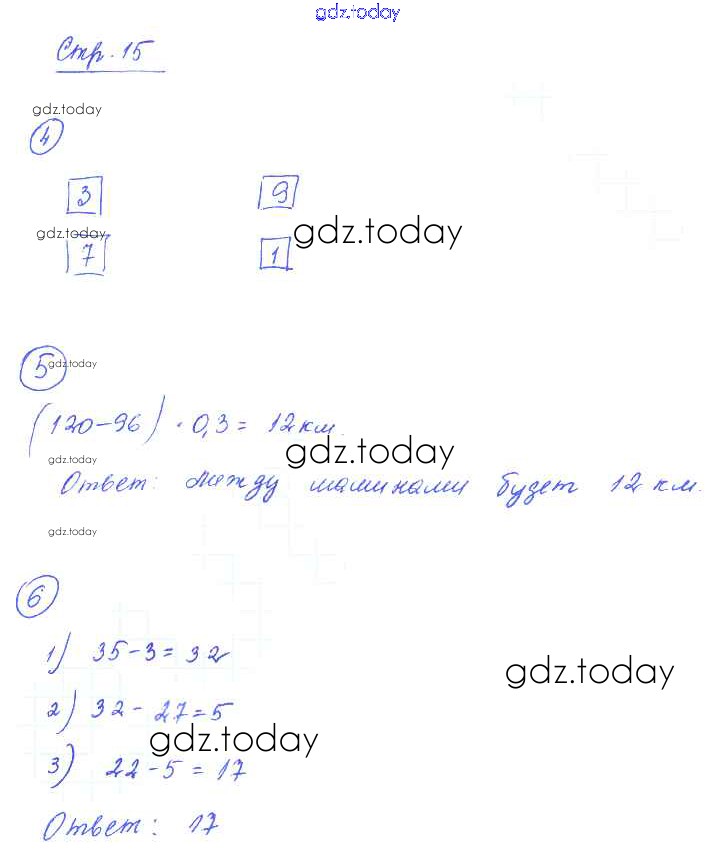 gdz.today
Стр. 15
gdz.today
4
3 9
gdz.today
gdz.today
7 1
5
gdz.today
(120-96) · 0,3 = 12 км.
gdz.today
gdz.today
Ответ: между машинами будет 12 км.
gdz.today
6
1) 35-3=32
gdz.today
2) 32-27=5
gdz.today
3) 22-5=17
Ответ: 17